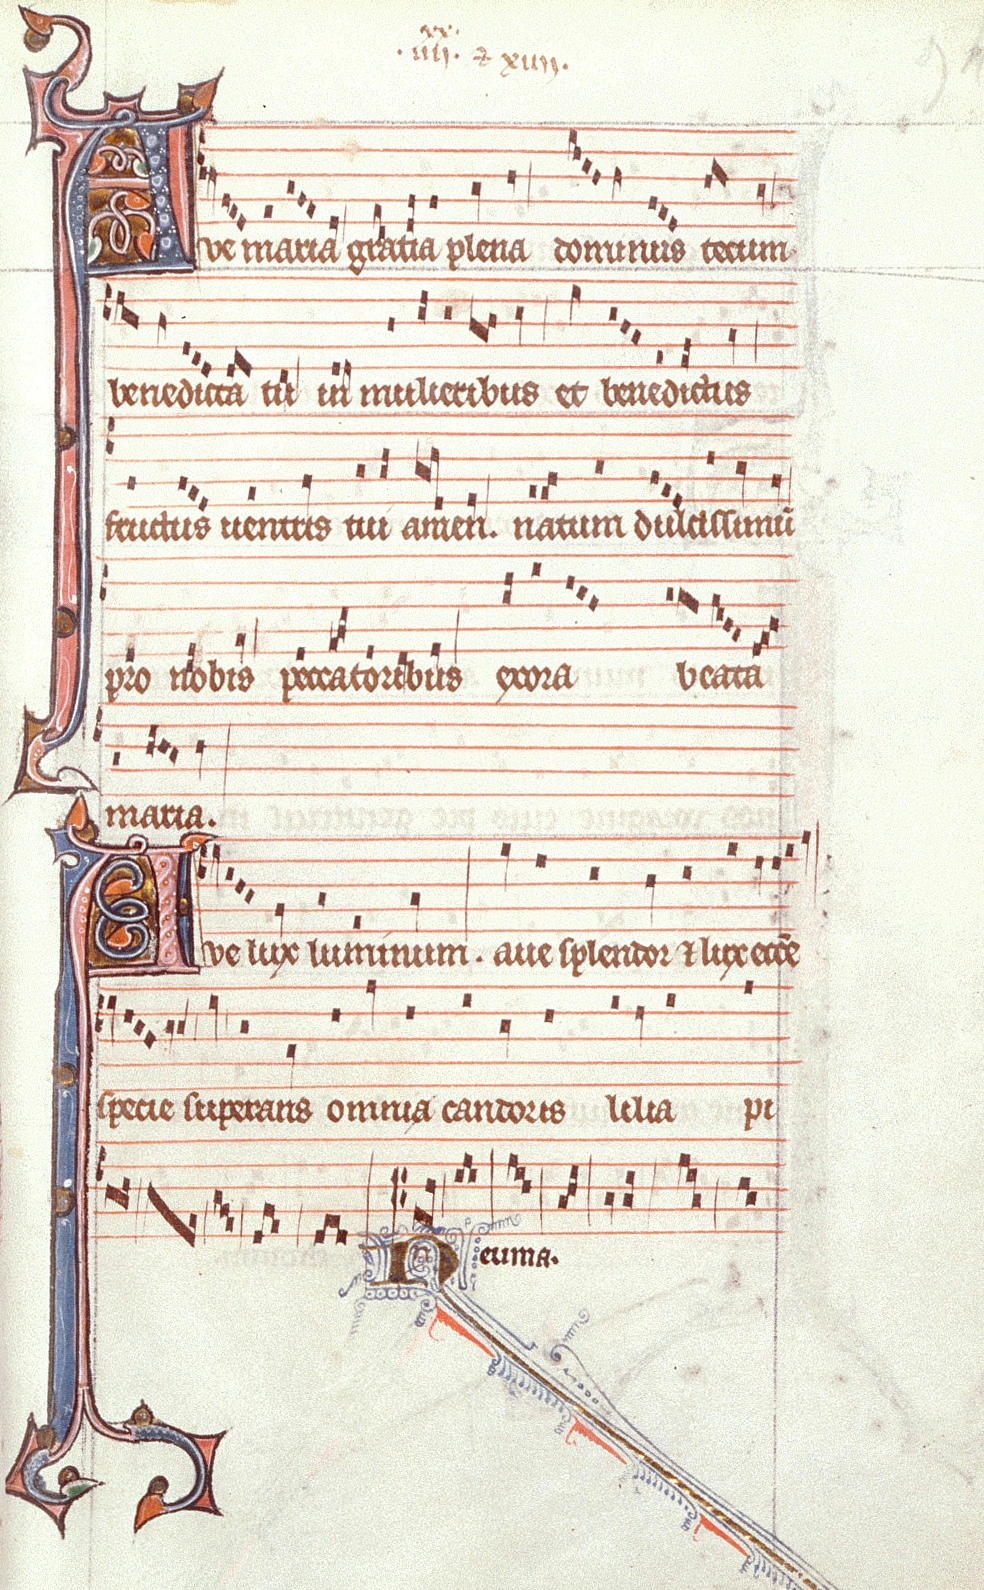 xx
.iiij. & xiiij.
Ave maria gratia plena dominus tecum.
benedicta tu in mulieribus et benedictus
fructus uentris tui amen. natum dulcissimū
pro nobis peccatoribus exora beata
maria.
Ave lux luminum. aue splendor & lux
specie superans omnia candoris lilia
Neuma.